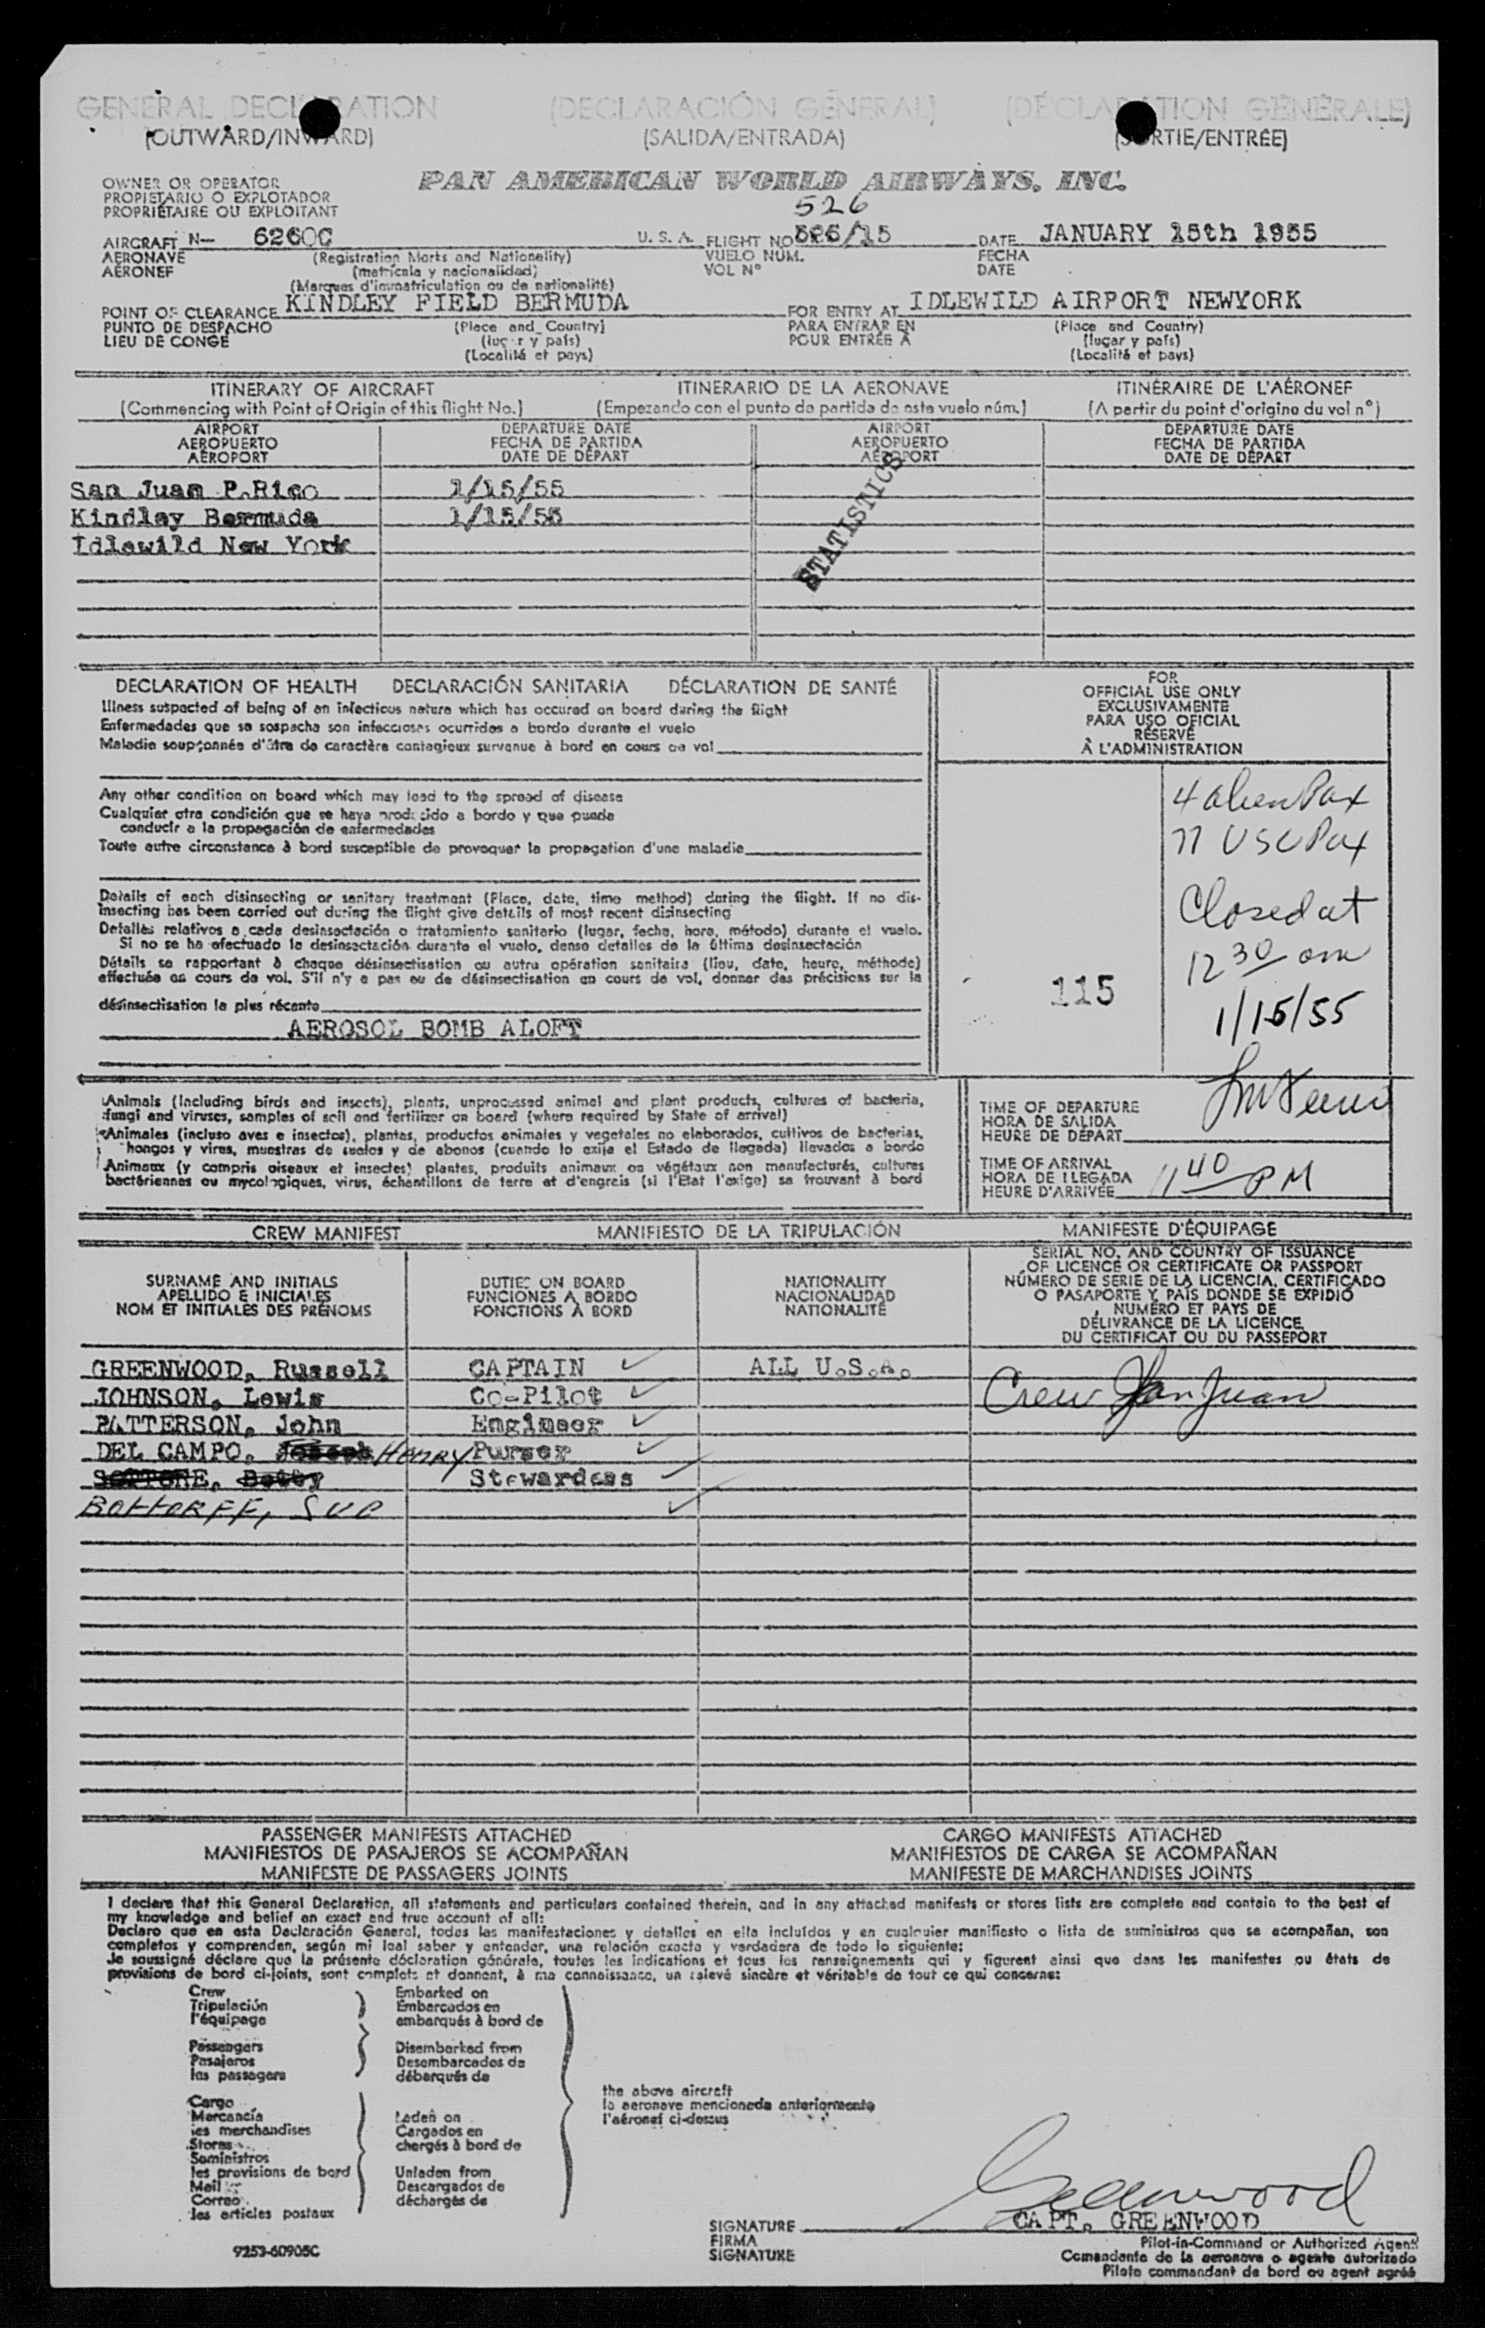 GENERAL DECLARATION (DECLARACIÓN GENERAL) (DÉCLARATION GÉNÉRALE)
(OUTWARD/INWARD) (SALIDA/ENTRADA) (SORTIE/ENTRÉE)
OWNER OR OPERATOR PAN AMERICAN WORLD AIRWAYS, INC.
PROPIETARIO O EXPLOTADOR
PROPRIÉTAIRE OU EXPLOITANT
526
AIRCRAFT N- 6260C U. S. A. FLIGHT NO 526/15 DATE JANUARY 15th 1955
AERONAVE (Registration Marks and Nationality) VUELO NUM. FECHA
AÉRONEF (matrícula y nacionalidad) VOL N° DATE
(Marques d'immatriculation ou de nationalité)
POINT OF CLEARANCE KINDLEY FIELD BERMUDA FOR ENTRY AT IDLEWILD AIRPORT NEWYORK
PUNTO DE DESPACHO (Place and Country) PARA ENTRAR EN (Place and Country)
LIEU DE CONGÉ (lugar y país) POUR ENTRÉE À (lugar y país)
(Localité et pays) (Localité et pays)
ITINERARY OF AIRCRAFT ITINERARIO DE LA AERONAVE ITINÉRAIRE DE L'AÉRONEF
(Commencing with Point of Origin of this flight No.) (Empezando con el punto de partida de este vuelo núm.) (A partir du point d'origine du vol n°)
AIRPORT DEPARTURE DATE AIRPORT DEPARTURE DATE
AEROPUERTO FECHA DE PARTIDA AEROPUERTO FECHA DE PARTIDA
AÉROPORT DATE DE DÉPART AÉROPORT DATE DE DÉPART
San Juan P.Rico 1/15/55
Kindley Bermuda 1/15/55
Idlewild New York
STATISTICS
DECLARATION OF HEALTH DECLARACIÓN SANITARIA DÉCLARATION DE SANTÉ
Illness suspected of being of an infectious nature which has occured on board during the flight
Enfermedades que se sospecha son infecciosas ocurridas a bordo durante el vuelo
Maladie soupçonnée d'être de caractère contagieux survenue à bord en cours de vol
Any other condition on board which may lead to the spread of disease
Cualquier otra condición que se haya producido a bordo y que pueda
conducir a la propagación de enfermedades
Toute autre circonstance à bord susceptible de provoquer la propagation d'une maladie
Details of each disinsecting or sanitary treatment (Place, date, time method) during the flight. If no dis-
insecting has been carried out during the flight give details of most recent disinsecting
Detalles relativos a cada desinsectación o tratamiento sanitario (lugar, fecha, hora, método) durante el vuelo.
Si no se ha efectuado la desinsectación durante el vuelo, dense detalles de la última desinsectación
Détails se rapportant à chaque désinsectisation ou autre opération sanitaire (lieu, date, heure, méthode)
effectuée au cours de vol. S'il n'y a pas eu de désinsectisation en cours de vol, donner des précisions sur la
désinsectisation la plus récente
AEROSOL BOMB ALOFT
FOR
OFFICIAL USE ONLY
EXCLUSIVAMENTE
PARA USO OFICIAL
RÉSERVÉ
À L'ADMINISTRATION
4 alien Pax
77 USC Pax
Closed at
12 30 am
115
1/15/55
Animals (Including birds and insects), plants, unprocessed animal and plant products, cultures of bacteria,
fungi and viruses, samples of soil and fertilizer on board (where required by State of arrival)
Animales (incluso aves e insectos), plantas, productos animales y vegetales no elaborados, cultivos de bacterias,
hongos y virus, muestras de suelos y de abonos (cuando lo exija el Estado de llegada) llevados a bordo
Animaux (y compris oiseaux et insectes) plantes, produits animaux ou végétaux non manufacturés, cultures
bactériennes ou mycologiques, virus, échantillons de terre et d'engrais (si l'Etat l'exige) se trouvant à bord
TIME OF DEPARTURE
HORA DE SALIDA
HEURE DE DÉPART
TIME OF ARRIVAL
HORA DE LLEGADA
HEURE D'ARRIVÉE 11 40 PM
CREW MANIFEST MANIFIESTO DE LA TRIPULACIÓN MANIFESTE D'ÉQUIPAGE
SURNAME AND INITIALS
APELLIDO E INICIALES
NOM ET INITIALES DES PRÉNOMS
DUTIES ON BOARD
FUNCIONES A BORDO
FONCTIONS À BORD
NATIONALITY
NACIONALIDAD
NATIONALITÉ
SERIAL NO. AND COUNTRY OF ISSUANCE
OF LICENCE OR CERTIFICATE OR PASSPORT
NÚMERO DE SERIE DE LA LICENCIA, CERTIFICADO
O PASAPORTE Y PAIS DONDE SE EXPIDIÓ
NUMÉRO ET PAYS DE
DÉLIVRANCE DE LA LICENCE,
DU CERTIFICAT OU DU PASSEPORT
GREENWOOD, Russell CAPTAIN ✓ ALL U.S.A.
JOHNSON, Lewis Co-Pilot ✓ Crew San Juan
PATTERSON, John Engineer ✓
DEL CAMPO, Joseph HENRY Purser ✓
Betty Stewardess ✓
BottorFF, SUE ✓
PASSENGER MANIFESTS ATTACHED CARGO MANIFESTS ATTACHED
MANIFIESTOS DE PASAJEROS SE ACOMPAÑAN MANIFIESTOS DE CARGA SE ACOMPAÑAN
MANIFESTE DE PASSAGERS JOINTS MANIFESTE DE MARCHANDISES JOINTS
I declare that this General Declaration, all statements and particulars contained therein, and in any attached manifests or stores lists are complete and contain to the best of
my knowledge and belief an exact and true account of all:
Declaro que en esta Declaración General, todas las manifestaciones y detalles en ella incluídos y en cualquier manifiesto o lista de suministros que se acompañan, son
completos y comprenden, según mi leal saber y entender, una relación exacta y verdadera de todo lo siguiente:
Je soussigné déclare que la présente déclaration générale, toutes les indications et tous les renseignements qui y figurent ainsi que dans les manifestes ou états de
provisions de bord ci-joints, sont complets et donnent, à ma connaissance, un relevé sincère et véritable de tout ce qui concerne:
Crew Embarked on
Tripulación Embarcados en
l'équipage embarqués à bord de
Passengers Disembarked from
Pasajeros Desembarcados de
les passagers débarqués de
the above aircraft
la aeronave mencionada anteriormente
l'aéronef ci-dessus
Cargo
Mercancía Laden on
les merchandises Cargados en
Stores chargés à bord de
Suministros
les provisions de bord Unladen from
Mail Descargados de
Correo déchargés de
les articles postaux
Greenwood
SIGNATURE CAPT. GREENWOOD
FIRMA Pilot-in-Command or Authorized Agent
SIGNATURE Comandante de la aeronave o agente autorizado
Pilote commandant de bord ou agent agréé
9253-60905C